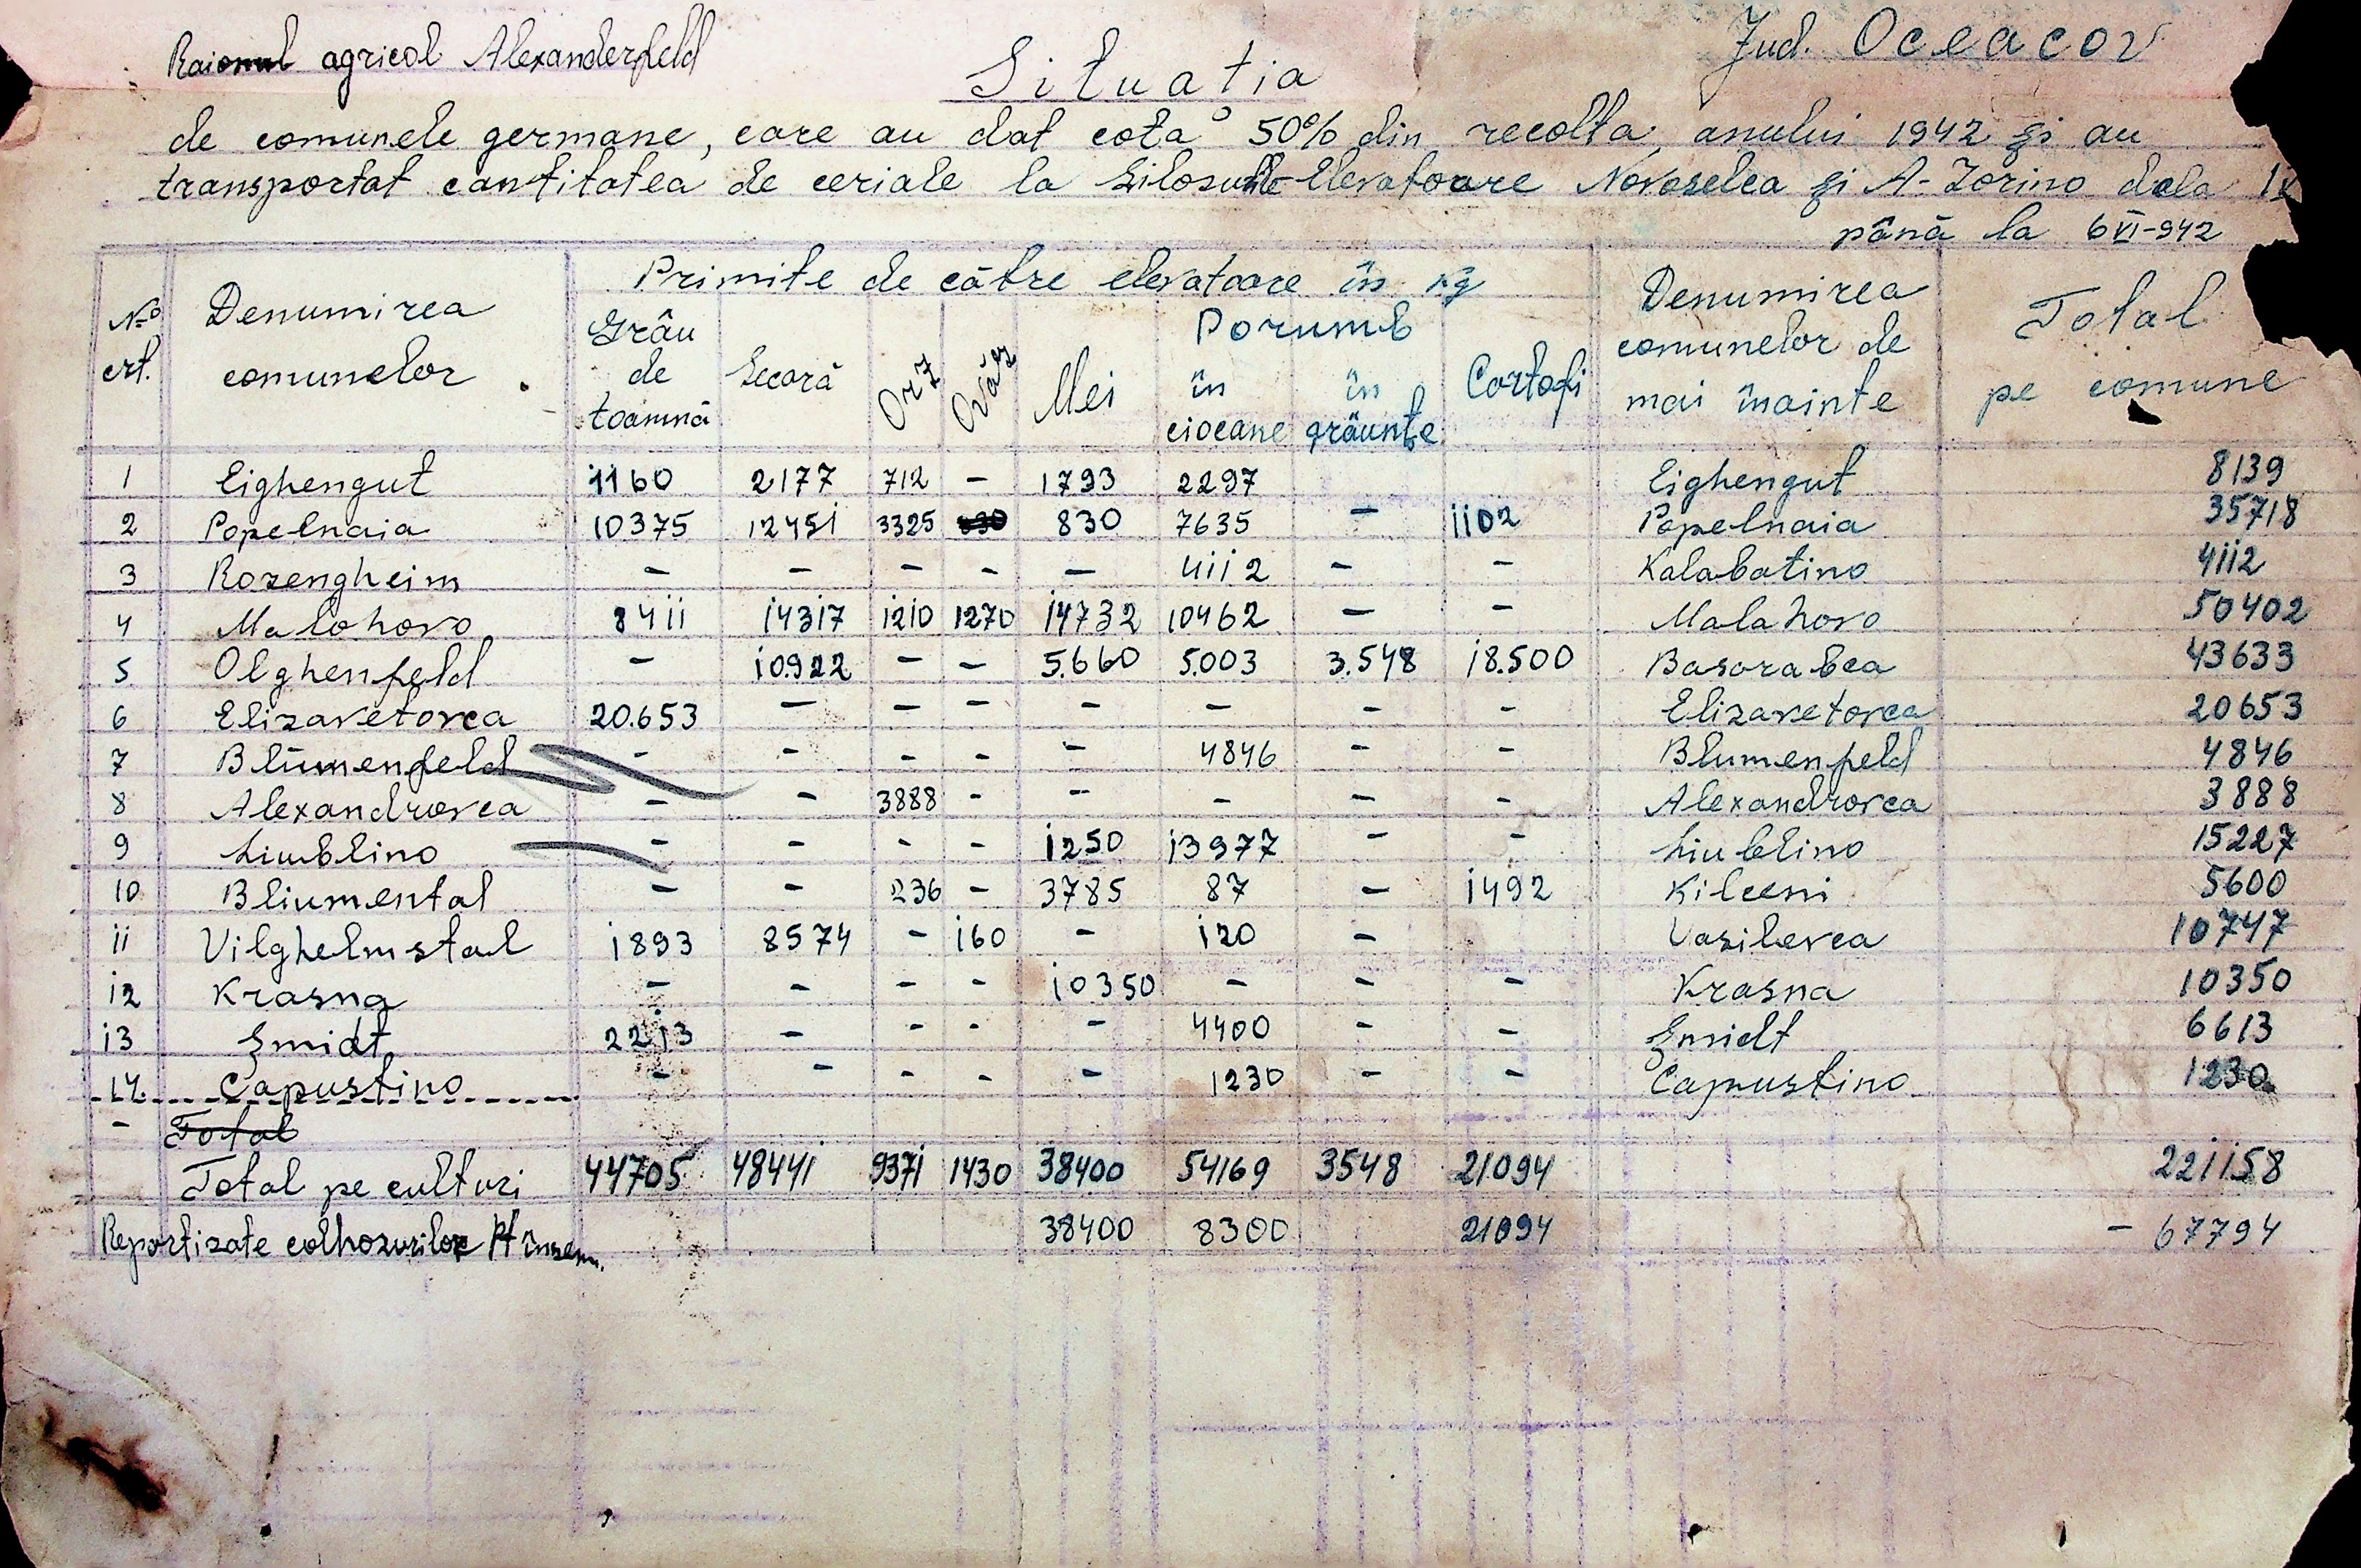 Raionul agricol Alexanderfeld
Jud. Oceacov
Situatia
de comunele germane, care au dat cota 50% din recolta anului 1942 și au
transportat cantitatea de ceriale la Silosurile Elevatoare Novoselca și A-Zorino dela
până la 6 VI-942
No crt. Denumirea comunelor Primite de către elevatoare în kg Denumirea comunelor de mai înainte Total pe comune
Grâu de toamnă Secară Orz Ovăz Mei Porumb în ciocane în grăunțe Cartofi
1 Eighengut 1160 2177 712 - 1793 2297 Eighengut 8139
2 Popelnaia 10375 12451 3325 830 830 7635 - 1102 Popelnaia 35718
3 Rozengheim - - - - - 4112 - - Kalabatino 4112
4 Malohovo 8411 14317 1210 1270 14732 10462 - - Malahovo 50402
5 Olghenfeld - 10.922 - - 5.660 5.003 3.548 18.500 Basarabca 43633
6 Elizavetovca 20.653 - - - - - - - Elizavetovca 20653
7 Blumenfeld - - - - - 4846 - - Blumenfeld 4846
8 Alexandrovca - - 3888 - - - - - Alexandrovca 3888
9 Liublino - - - - 1250 13977 - - Liublino 15227
10 Bliumental - - 236 - 3785 87 - 1492 Kilceni 5600
11 Vilghelmstal 1893 8574 - 160 - 120 - Vasilevca 10747
12 Krasna - - - - 10350 - - - Krasna 10350
13 Șmidt 2213 - - - - 4400 - - Șmidt 6613
14. Capustino - - - - - 1230 - - Capustino 1230
- Total
Total pe culturi 44705 48441 9371 1430 38400 54169 3548 21094 221158
Repartizate colhozurilor pt însem. 38400 8300 21094 - 67794